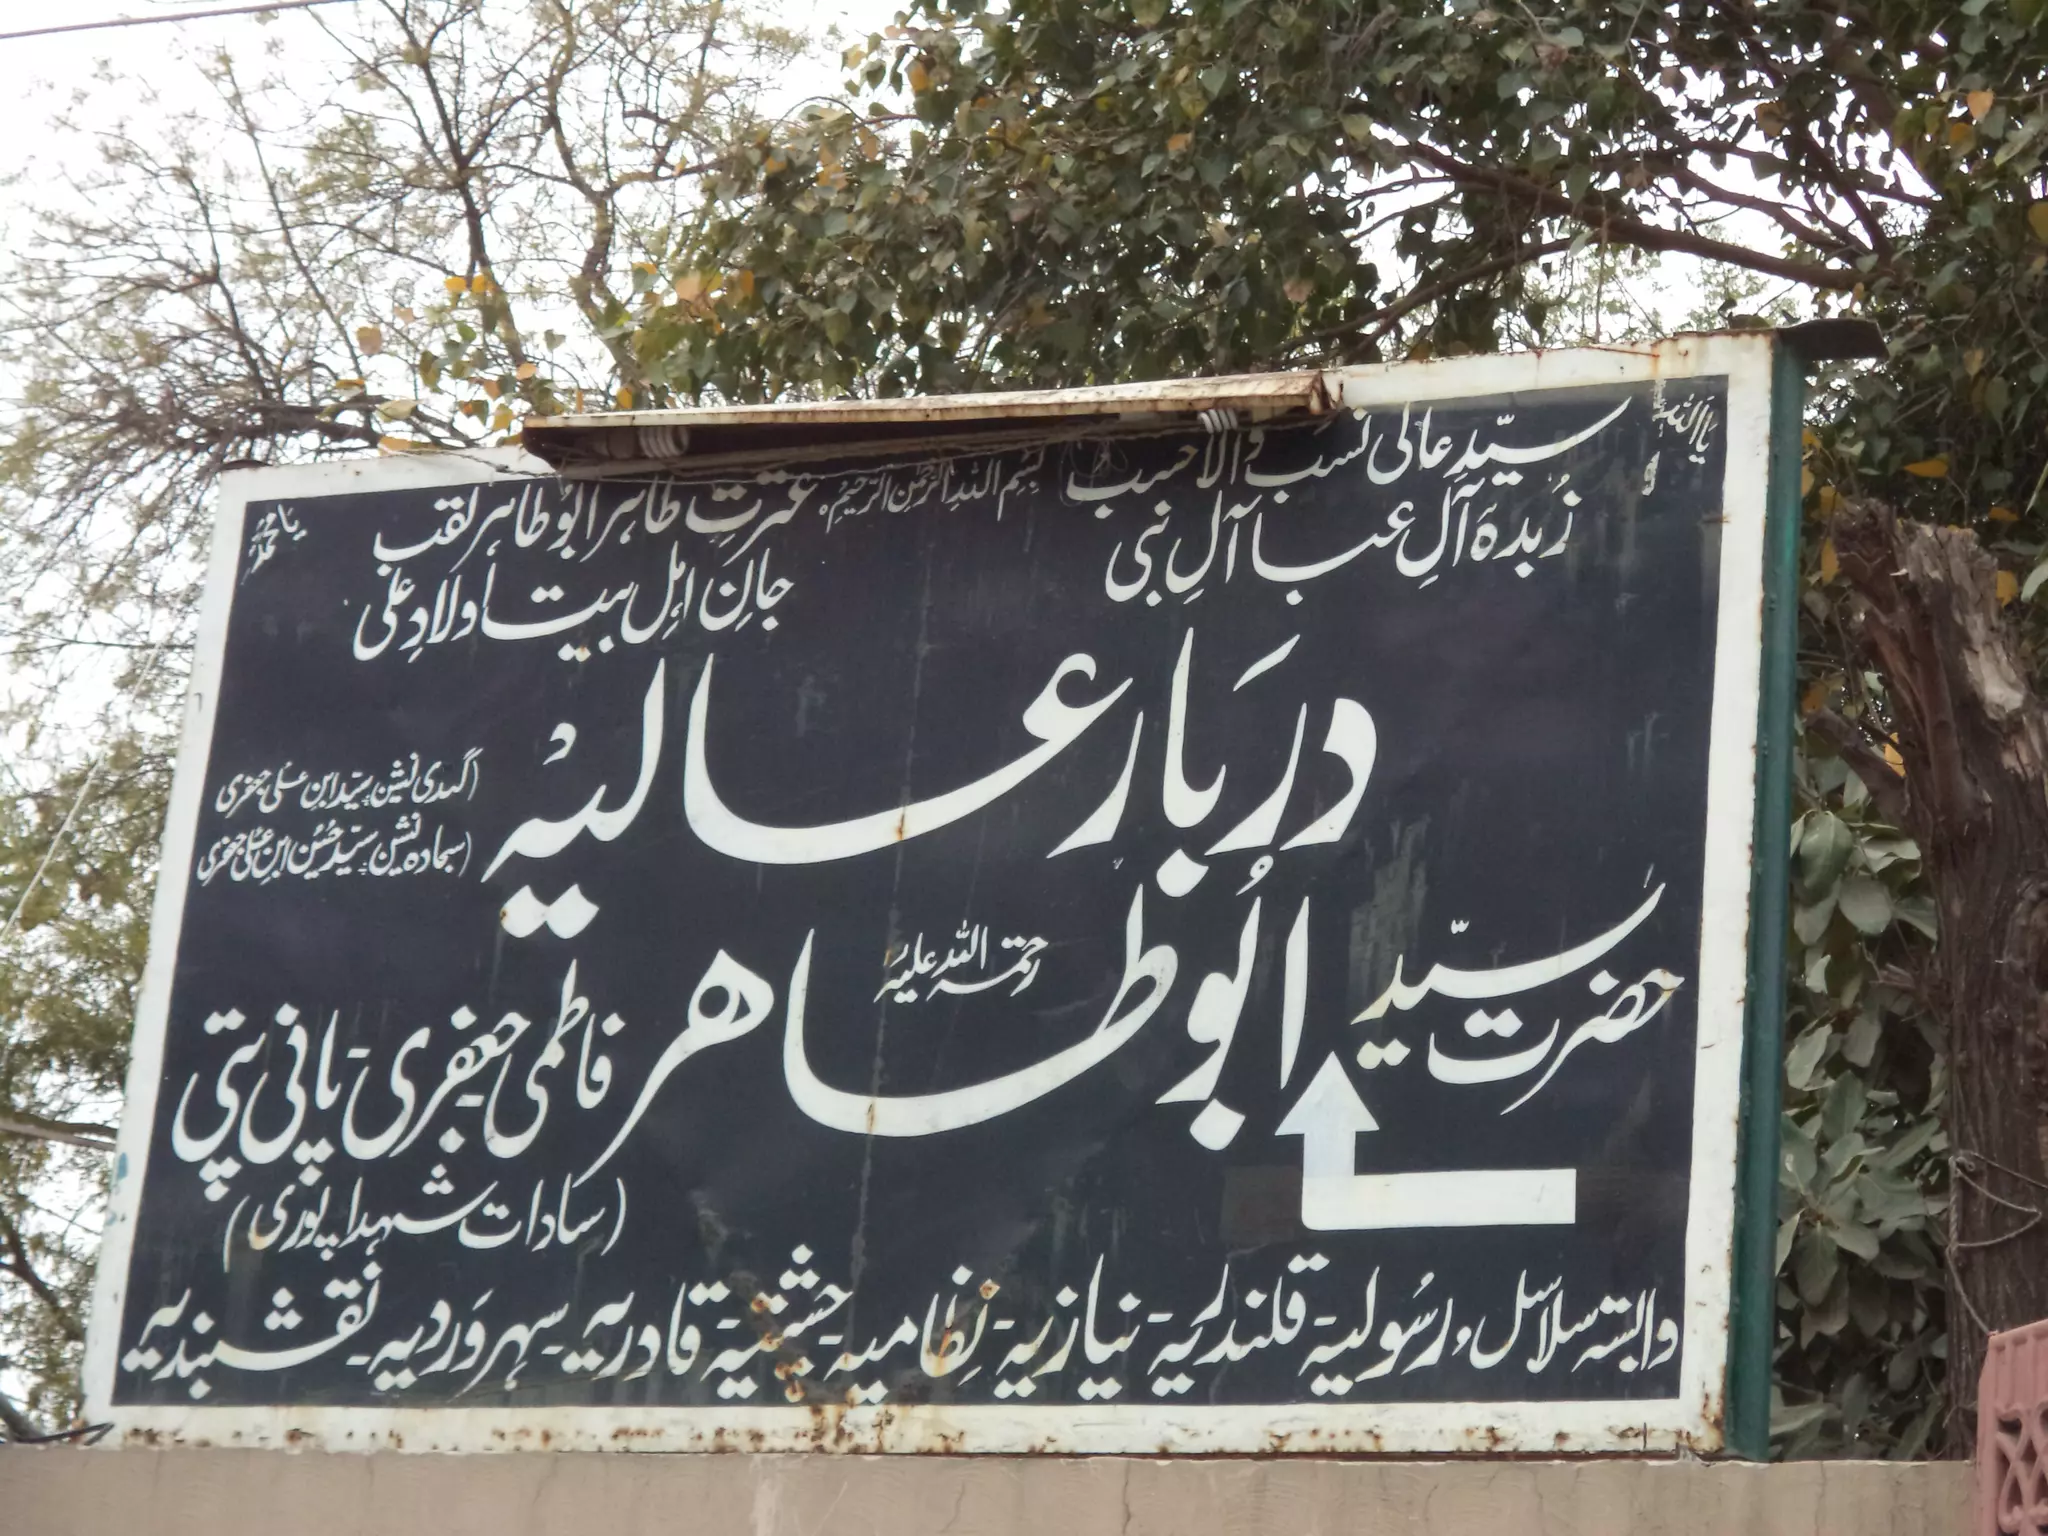 یا اللہ
بسم اللہ الرحمن الرحیم
یا محمدؐ
سیّدِ عالی نسب والا حسب
زُبدۂ آلِ عبا آلِ نبی
عترتِ طاہر ابُو طاہر لقب
جانِ اہلِ بیت اولادِ علی
دربار عالیہ
(گدی نشین سیّد ابن علی جعفری
(سجادہ نشین سیّد حُسین ابنِ علی جعفری
حضرت سیّد ابُو طاہر رحمتہ اللہ علیہ فاطمی جعفری۔ پانی پتی
(سادات شہدا پوری)
وابستہ سلاسل، رسُولیہ۔ قلندریہ۔ نیازیہ۔ نظامیہ۔ چشتیہ۔ قادریہ۔ سہروردیہ۔ نقشبندیہ